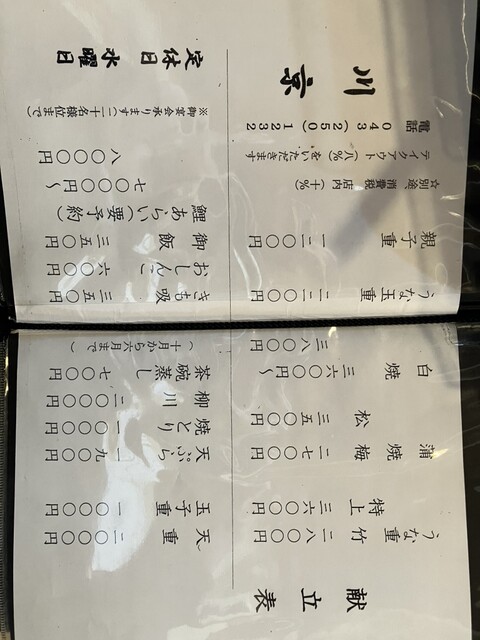 献立表
うな重 竹 二八〇〇円
特上 三六〇〇円
蒲焼 梅 二七〇〇円
松 三五〇〇円
白焼 三六〇〇円〜
三八〇〇円
うな玉重 二二〇〇円
親子重 一二〇〇円
☆別途、消費税(店内 十%)
テイクアウト(八%)をいただきます
電話 (052) 340 2321
川京
天重 二〇〇〇円
玉子重 一〇〇〇円
天ぷら 一九〇〇円
焼とり 一〇〇〇円
柳川 二〇〇〇円
茶碗蒸し 七〇〇円
(十月から六月まで)
きも吸 三五〇円
おしんこ 六〇〇円
御飯 三五〇円
鯉あらい(要予約)
七〇〇〇円〜
八〇〇〇円
※御宴会承ります(二十名様位まで)
定休日 水曜日